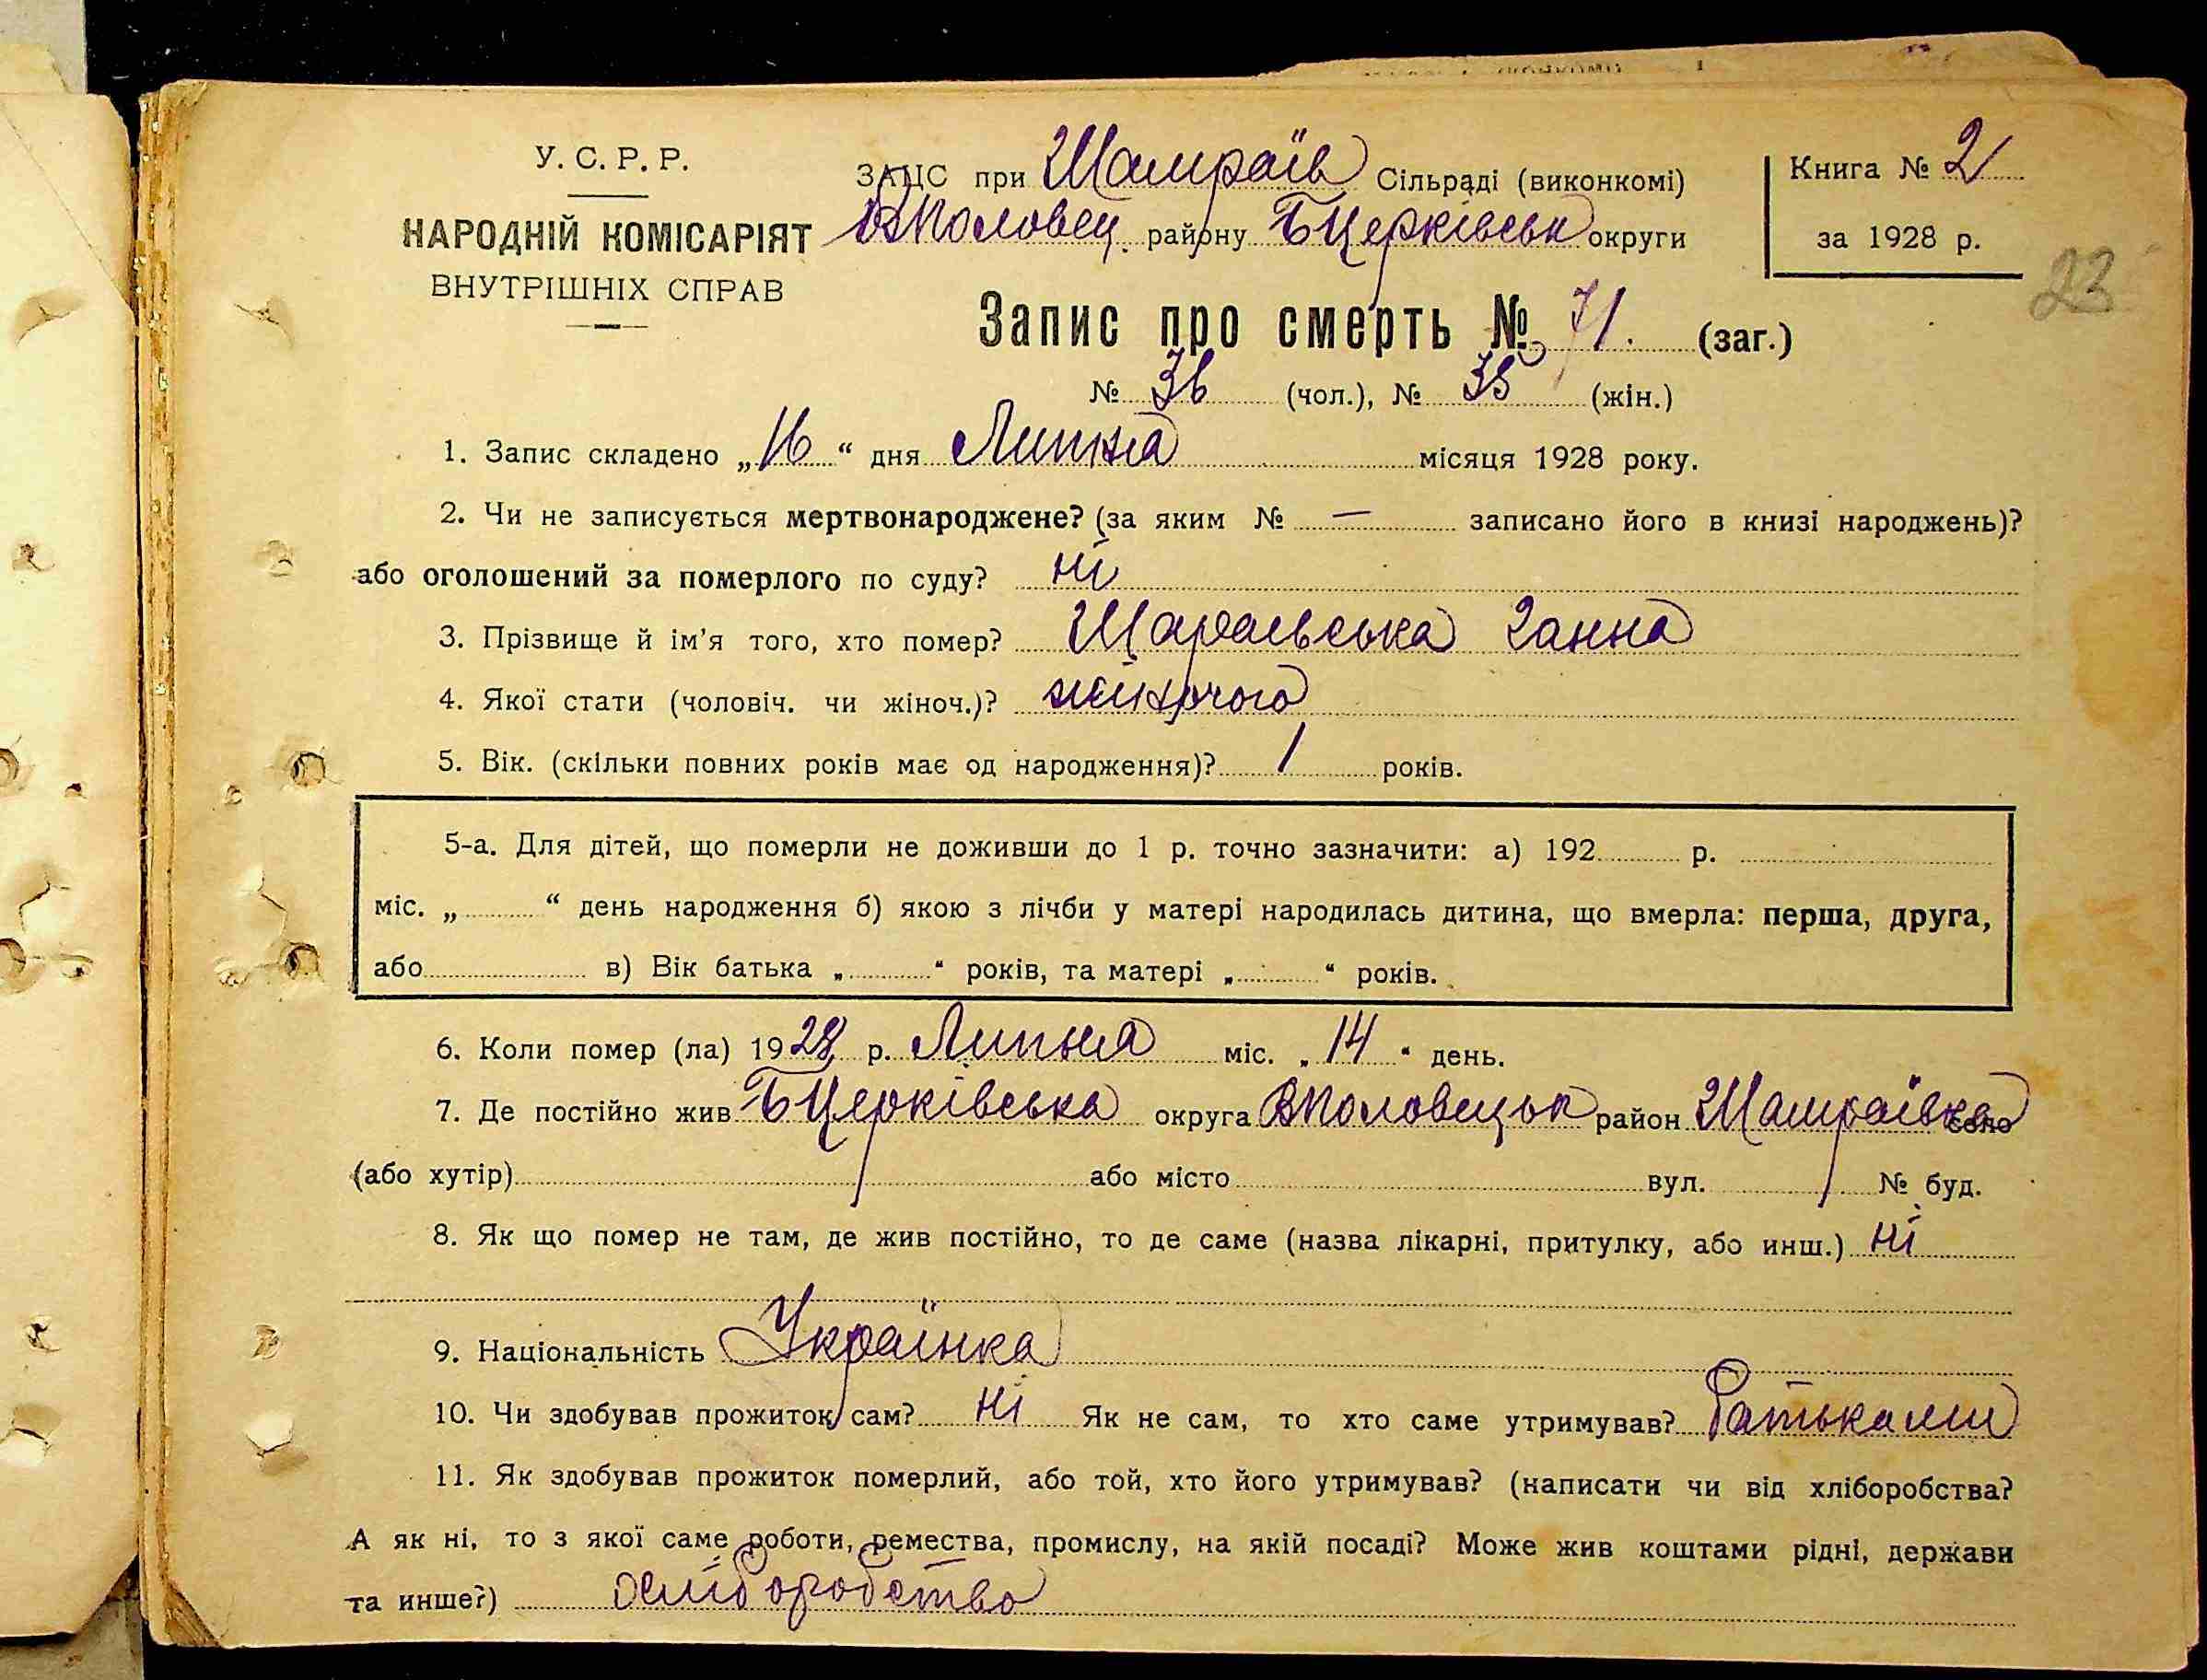 У. С. Р. Р.
НАРОДНІЙ КОМІСАРІЯТ
ВНУТРІШНІХ СПРАВ
ЗАЦС при Шамраїв Сільраді (виконкомі)
ВПоловец. району БЦерківськ округи
Книга № 2
за 1928 р.
23
Запис про смерть № 71. (заг.)
№ 36 (чол.), № 35 (жін.)
1. Запис складено „16“ дня Липня місяця 1928 року.
2. Чи не записується мертвонароджене? (за яким № — записано його в книзі народжень)?
або оголошений за померлого по суду? ні
3. Прізвище й ім'я того, хто помер? Ганна
4. Якої стати (чоловіч. чи жіноч.)? жіночого
5. Вік. (скільки повних років має од народження)? 1 років.
5-а. Для дітей, що померли не доживши до 1 р. точно зазначити: а) 192 р.
міс. „ “ день народження б) якою з лічби у матері народилась дитина, що вмерла: перша, друга,
або в) Вік батька „ “ років, та матері „ “ років.
6. Коли помер (ла) 1928 р. Липня міс. „14“ день.
7. Де постійно жив БЦерківська округа ВПоловецьк район Шамраївка село
(або хутір) або місто вул. № буд.
8. Як що помер не там, де жив постійно, то де саме (назва лікарні, притулку, або инш.) ні
9. Національність Українка
10. Чи здобував прожиток сам? ні Як не сам, то хто саме утримував? Батьками
11. Як здобував прожиток померлий, або той, хто його утримував? (написати чи від хліборобства?
А як ні, то з якої саме роботи, ремества, промислу, на якій посаді? Може жив коштами рідні, держави
та инше?) хліборобство